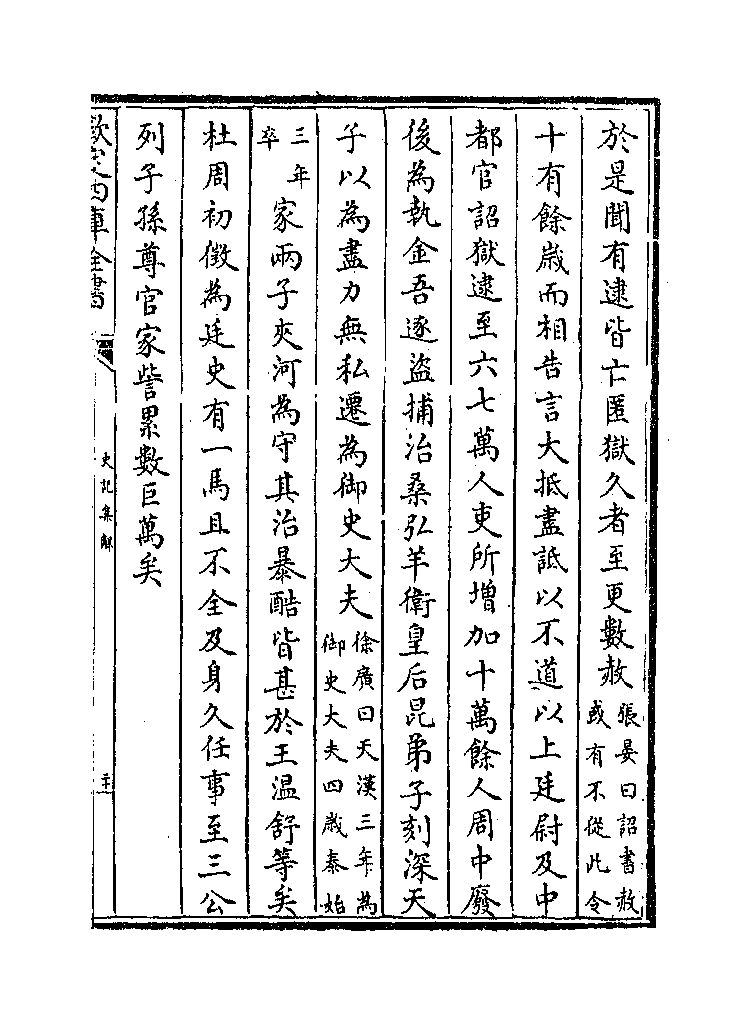 於是聞有逮皆亡匿獄久者至更數赦張晏曰詔書赦或有不從此令
十有餘歲而相告言大抵盡詆以不道以上廷尉及中
都官詔獄逮至六七萬人吏所增加十萬餘人周中廢
後為執金吾逐盜捕治桑弘羊衛皇后昆弟子刻深天
子以為盡力無私遷為御史大夫徐廣曰天漢三年為御史大夫四歲泰始
三年卒家兩子夾河為守其治暴酷皆甚於王温舒等矣
杜周初徵為廷史有一馬且不全及身久任事至三公
列子孫尊官家訾累數巨萬矣
欽定四庫全書
史記集解